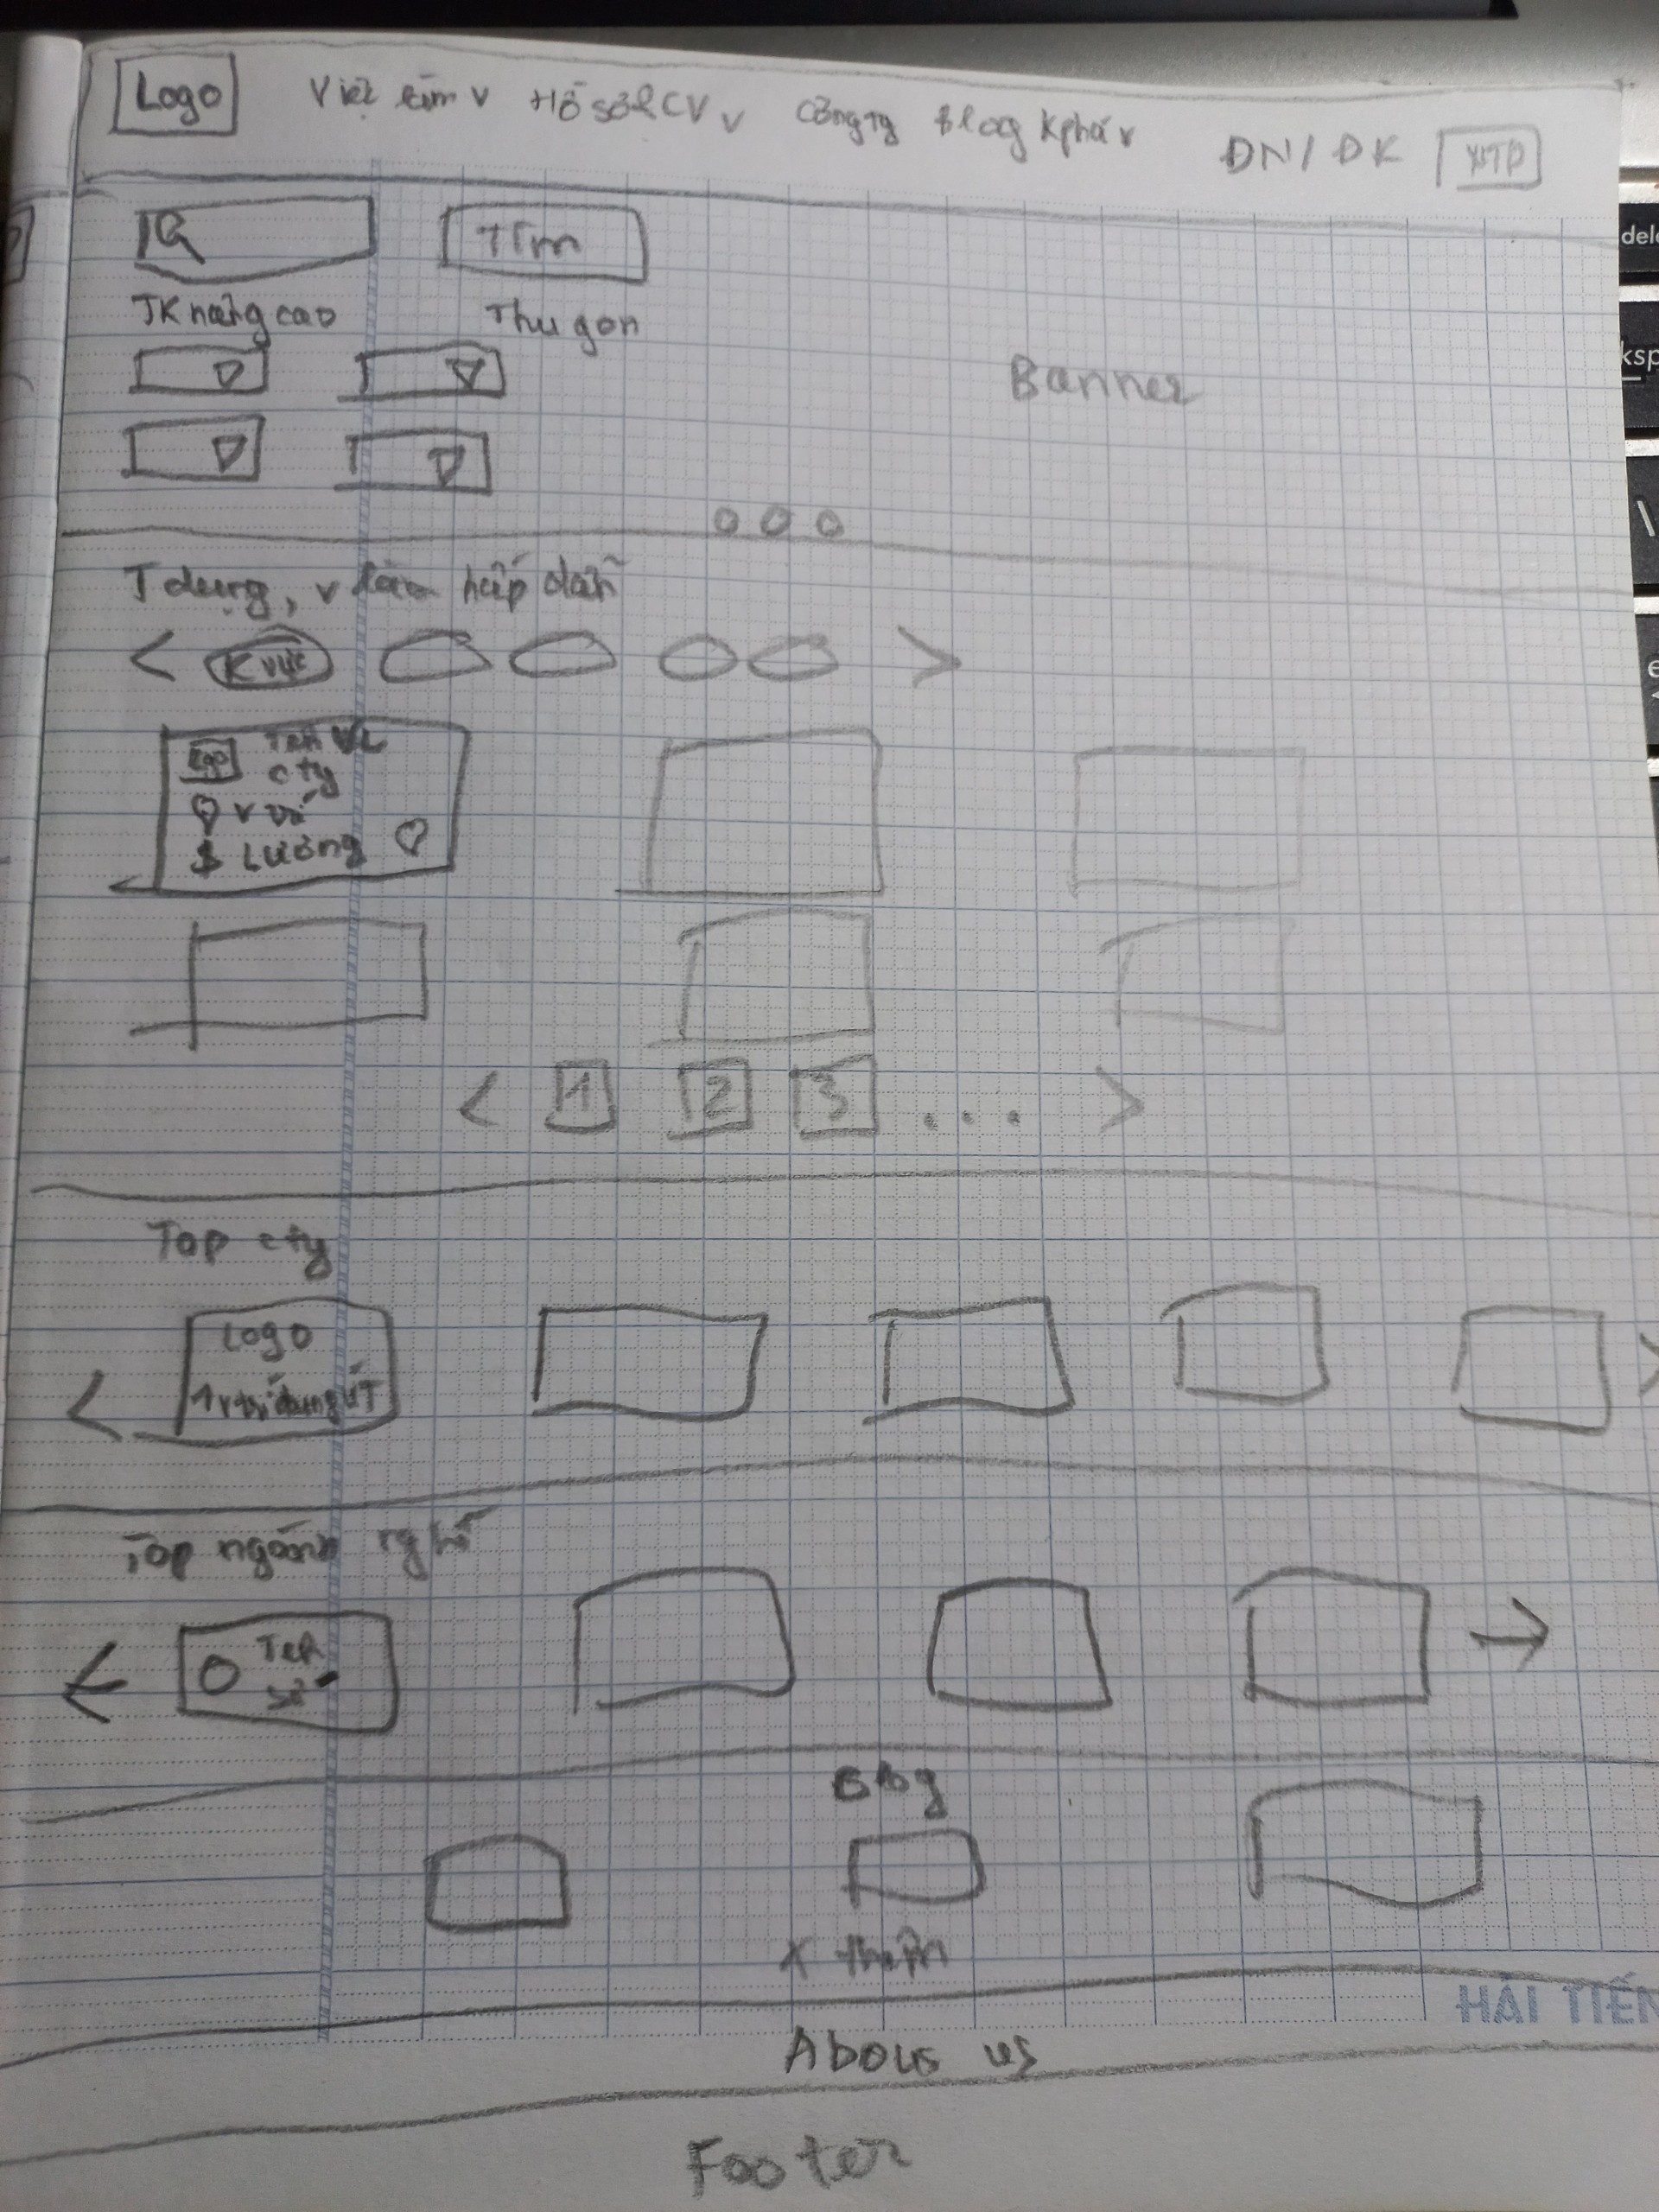 Logo Việc làm v Hồ sơ & CV v Công ty Blog Kphá v ĐN / ĐK NTD
Tìm
TK nâng cao Thu gọn
Banner
T dụng, v làm hấp dẫn
< K vực >
Logo Tên VL
cty
v trí
$ Lương
< 1 2 3 ... >
Top cty
Logo
1 v trí đang ƯT
Top ngành nghề
Tên
số
Blog
X thêm
HẢI TIẾN
About us
Footer
dele
ksp
\
e